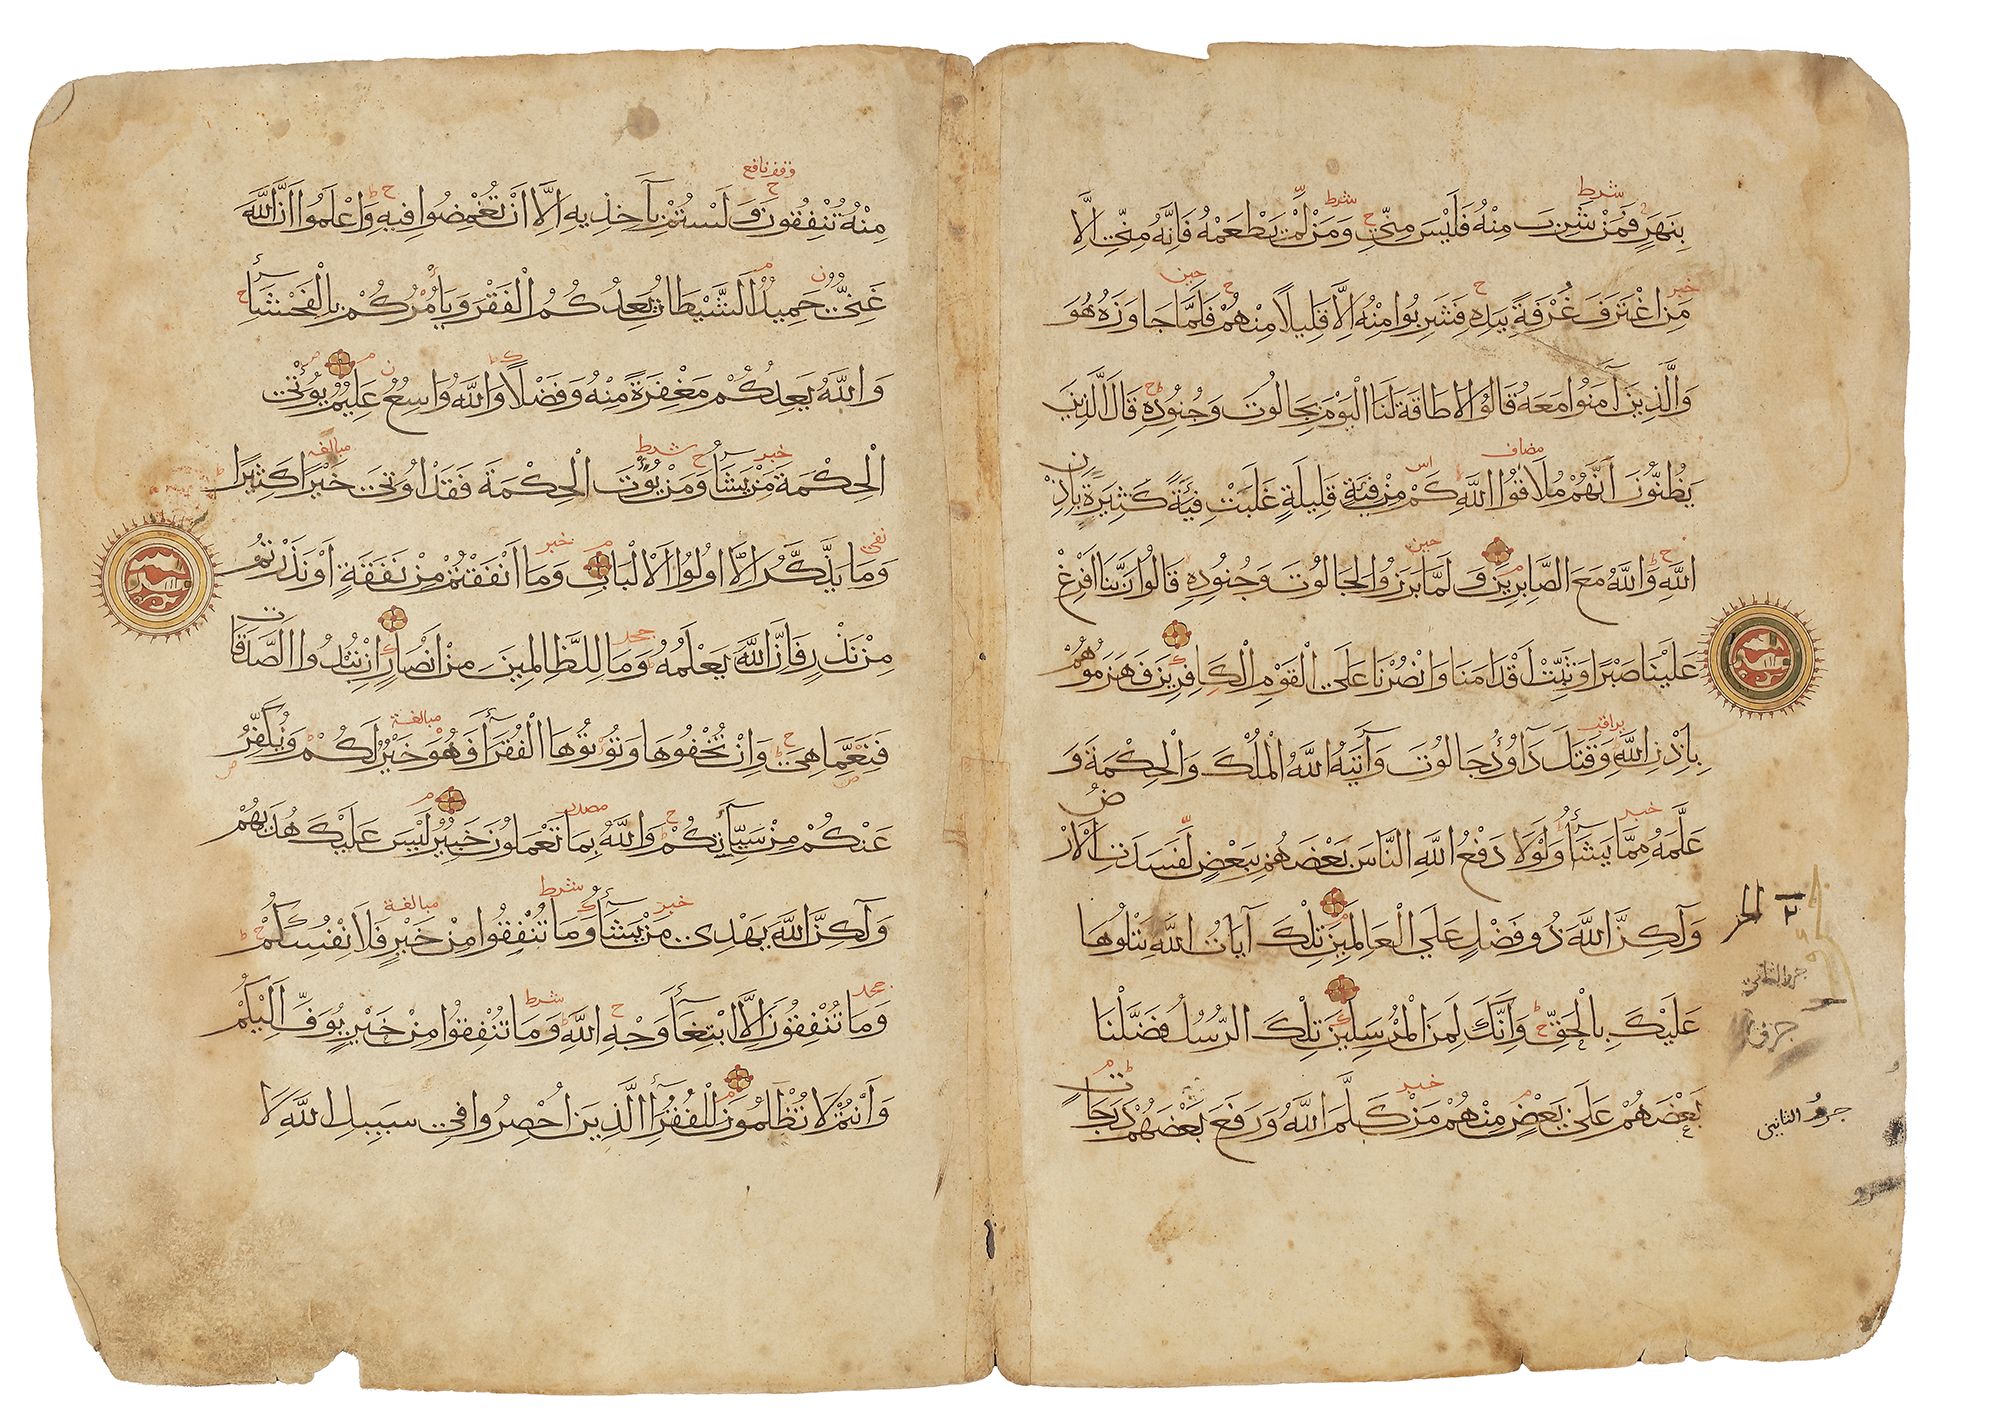 شرط شرط
بِنَهَرٍ فَمَنْ شَرِبَ مِنْهُ فَلَيْسَ مِنِّي وَمَنْ لَمْ يَطْعَمْهُ فَاِنَّهُ مِنِّي اِلَّا
خبر حين
مَنِ اغْتَرَفَ غُرْفَةً بِيَدِهِ فَشَرِبُوا مِنْهُ اِلَّا قَلِيلًا مِنْهُمْ فَلَمَّا جَاوَزَهُ هُوَ
وَالَّذِينَ آمَنُوا مَعَهُ قَالُوا لَا طَاقَةَ لَنَا الْيَوْمَ بِجَالُوتَ وَجُنُودِهِ قَالَ الَّذِينَ
مضاف
يَظُنُّونَ اَنَّهُمْ مُلَاقُوا اللَّهِ كَمْ مِنْ فِئَةٍ قَلِيلَةٍ غَلَبَتْ فِئَةً كَثِيرَةً بِاِذْنِ
حين
اللَّهِ وَاللَّهُ مَعَ الصَّابِرِينَ وَلَمَّا بَرَزُوا لِجَالُوتَ وَجُنُودِهِ قَالُوا رَبَّنَا اَفْرِغْ
عَلَيْنَا صَبْرًا وَثَبِّتْ اَقْدَامَنَا وَانْصُرْنَا عَلَى الْقَوْمِ الْكَافِرِينَ فَهَزَمُوهُمْ
بِاِذْنِ اللَّهِ وَقَتَلَ دَاوُدُ جَالُوتَ وَآتَيهُ اللَّهُ الْمُلْكَ وَالْحِكْمَةَ وَ
خبر
عَلَّمَهُ مِمَّا يَشَآءُ وَلَوْلَا دَفْعُ اللَّهِ النَّاسَ بَعْضَهُمْ بِبَعْضٍ لَفَسَدَتِ الْاَرْضُ
وَلَكِنَّ اللَّهَ ذُو فَضْلٍ عَلَى الْعَالَمِينَ تِلْكَ آيَاتُ اللَّهِ نَتْلُوهَا
عَلَيْكَ بِالْحَقِّ وَاِنَّكَ لَمِنَ الْمُرْسَلِينَ تِلْكَ الرُّسُلُ فَضَّلْنَا
خبر
بَعْضَهُمْ عَلَى بَعْضٍ مِنْهُمْ مَنْ كَلَّمَ اللَّهُ وَرَفَعَ بَعْضَهُمْ دَرَجَاتٍ
جزؤ الثاني
مِنْهُ تُنْفِقُونَ وَلَسْتُمْ بِآخِذِيهِ اِلَّا اَنْ تُغْمِضُوا فِيهِ وَاعْلَمُوا اَنَّ اللَّهَ
غَنِيٌّ حَمِيدٌ الشَّيْطَانُ يَعِدُكُمُ الْفَقْرَ وَيَأْمُرُكُمْ بِالْفَحْشَآءِ
وَاللَّهُ يَعِدُكُمْ مَغْفِرَةً مِنْهُ وَفَضْلًا وَاللَّهُ وَاسِعٌ عَلِيمٌ يُؤْتِي
خبر شرط مبالغه
الْحِكْمَةَ مَنْ يَشَآءُ وَمَنْ يُؤْتَ الْحِكْمَةَ فَقَدْ اُوتِيَ خَيْرًا كَثِيرًا
نفي خبر
وَمَا يَذَّكَّرُ اِلَّا اُولُوا الْاَلْبَابِ وَمَا اَنْفَقْتُمْ مِنْ نَفَقَةٍ اَوْ نَذَرْتُمْ
جحد
مِنْ نَذْرٍ فَاِنَّ اللَّهَ يَعْلَمُهُ وَمَا لِلظَّالِمِينَ مِنْ اَنْصَارٍ اِنْ تُبْدُوا الصَّدَقَاتِ
مبالغة
فَنِعِمَّا هِيَ وَاِنْ تُخْفُوهَا وَتُؤْتُوهَا الْفُقَرَآءَ فَهُوَ خَيْرٌ لَكُمْ وَنُكَفِّرُ
مصدر
عَنْكُمْ مِنْ سَيِّآتِكُمْ وَاللَّهُ بِمَا تَعْمَلُونَ خَبِيرٌ لَيْسَ عَلَيْكَ هُدَيهُمْ
خبر شرط مبالغة
وَلَكِنَّ اللَّهَ يَهْدِي مَنْ يَشَآءُ وَمَا تُنْفِقُوا مِنْ خَيْرٍ فَلِاَنْفُسِكُمْ
جحد شرط
وَمَا تُنْفِقُونَ اِلَّا ابْتِغَآءَ وَجْهِ اللَّهِ وَمَا تُنْفِقُوا مِنْ خَيْرٍ يُوَفَّ اِلَيْكُمْ
وَاَنْتُمْ لَا تُظْلَمُونَ لِلْفُقَرَآءِ الَّذِينَ اُحْصِرُوا فِي سَبِيلِ اللَّهِ لَا